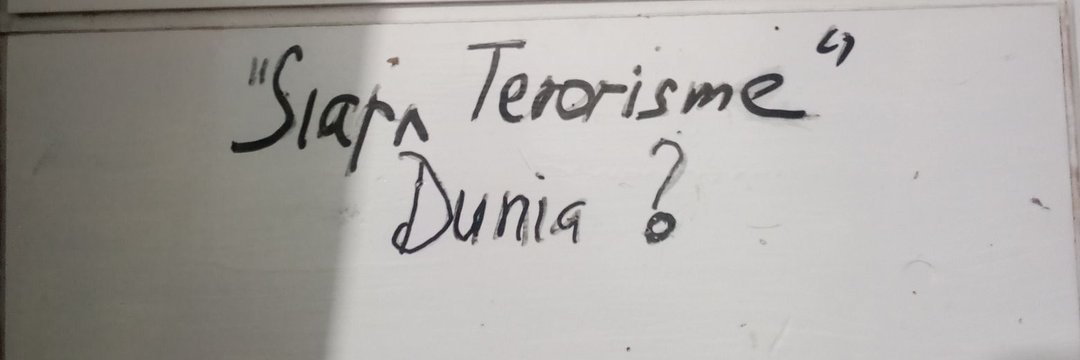 "Siapa Terorisme"
Dunia ?